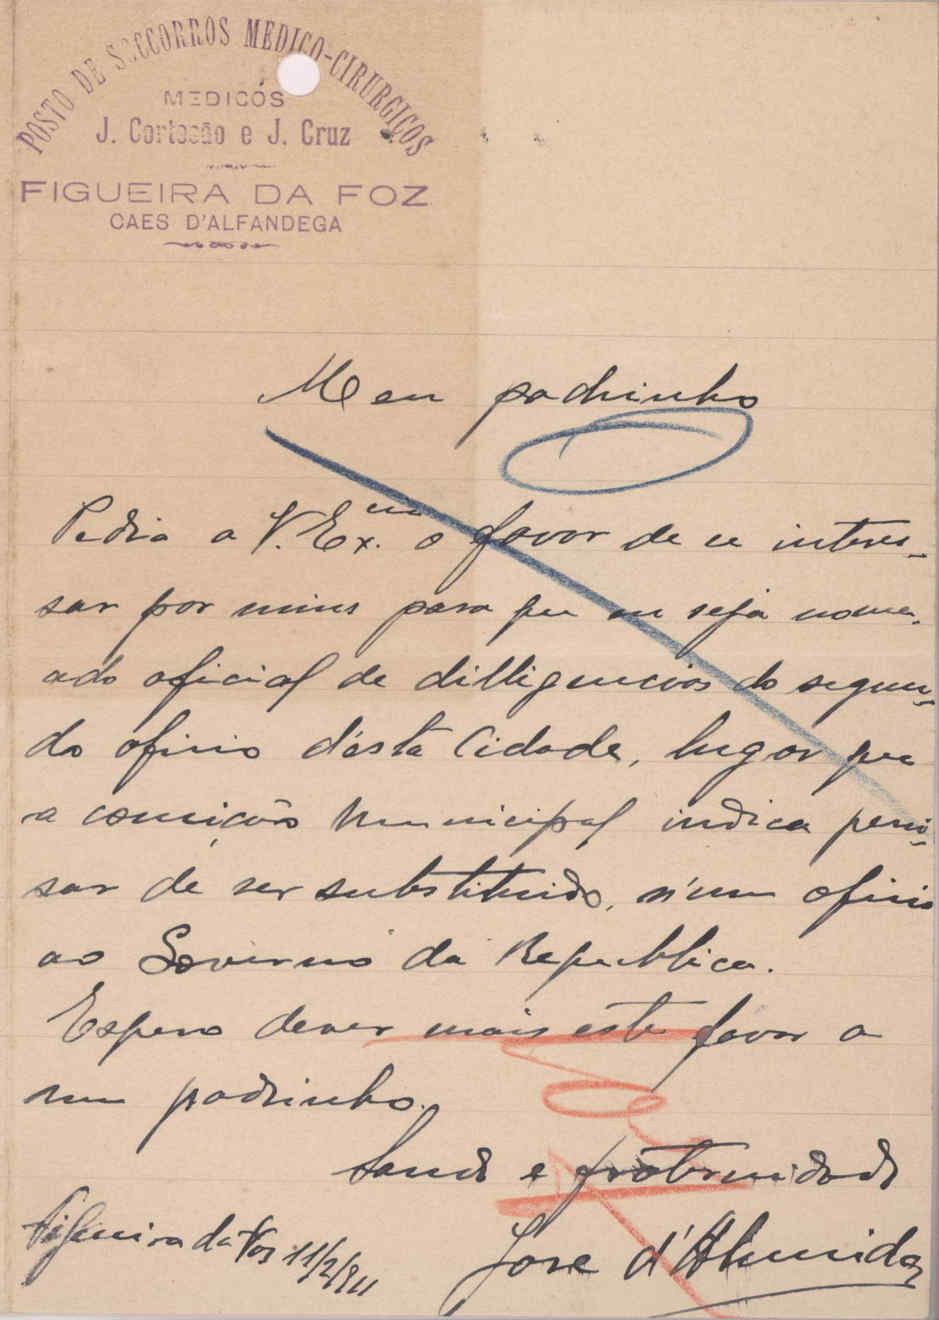 POSTO DE SOCCORROS MEDICO-CIRURGICOS
MEDICOS
J. Cortesão e J. Cruz
FIGUEIRA DA FOZ
CAES D'ALFANDEGA
Meu padrinho
Pedia a V. Ex.cia o favor de se interes-
sar por mim para que eu seja nome-
ado oficial de dilligencias do segun-
do oficio d'esta Cidade, lugar que
a comição Municipal indica preci-
sar de ser substituido, n'um oficio
ao Governo da Republica.
Espero dever mais este favor a
meu padrinho.
Saude e fraternidade
Figueira da Foz 11/2/911
José d'Almeida